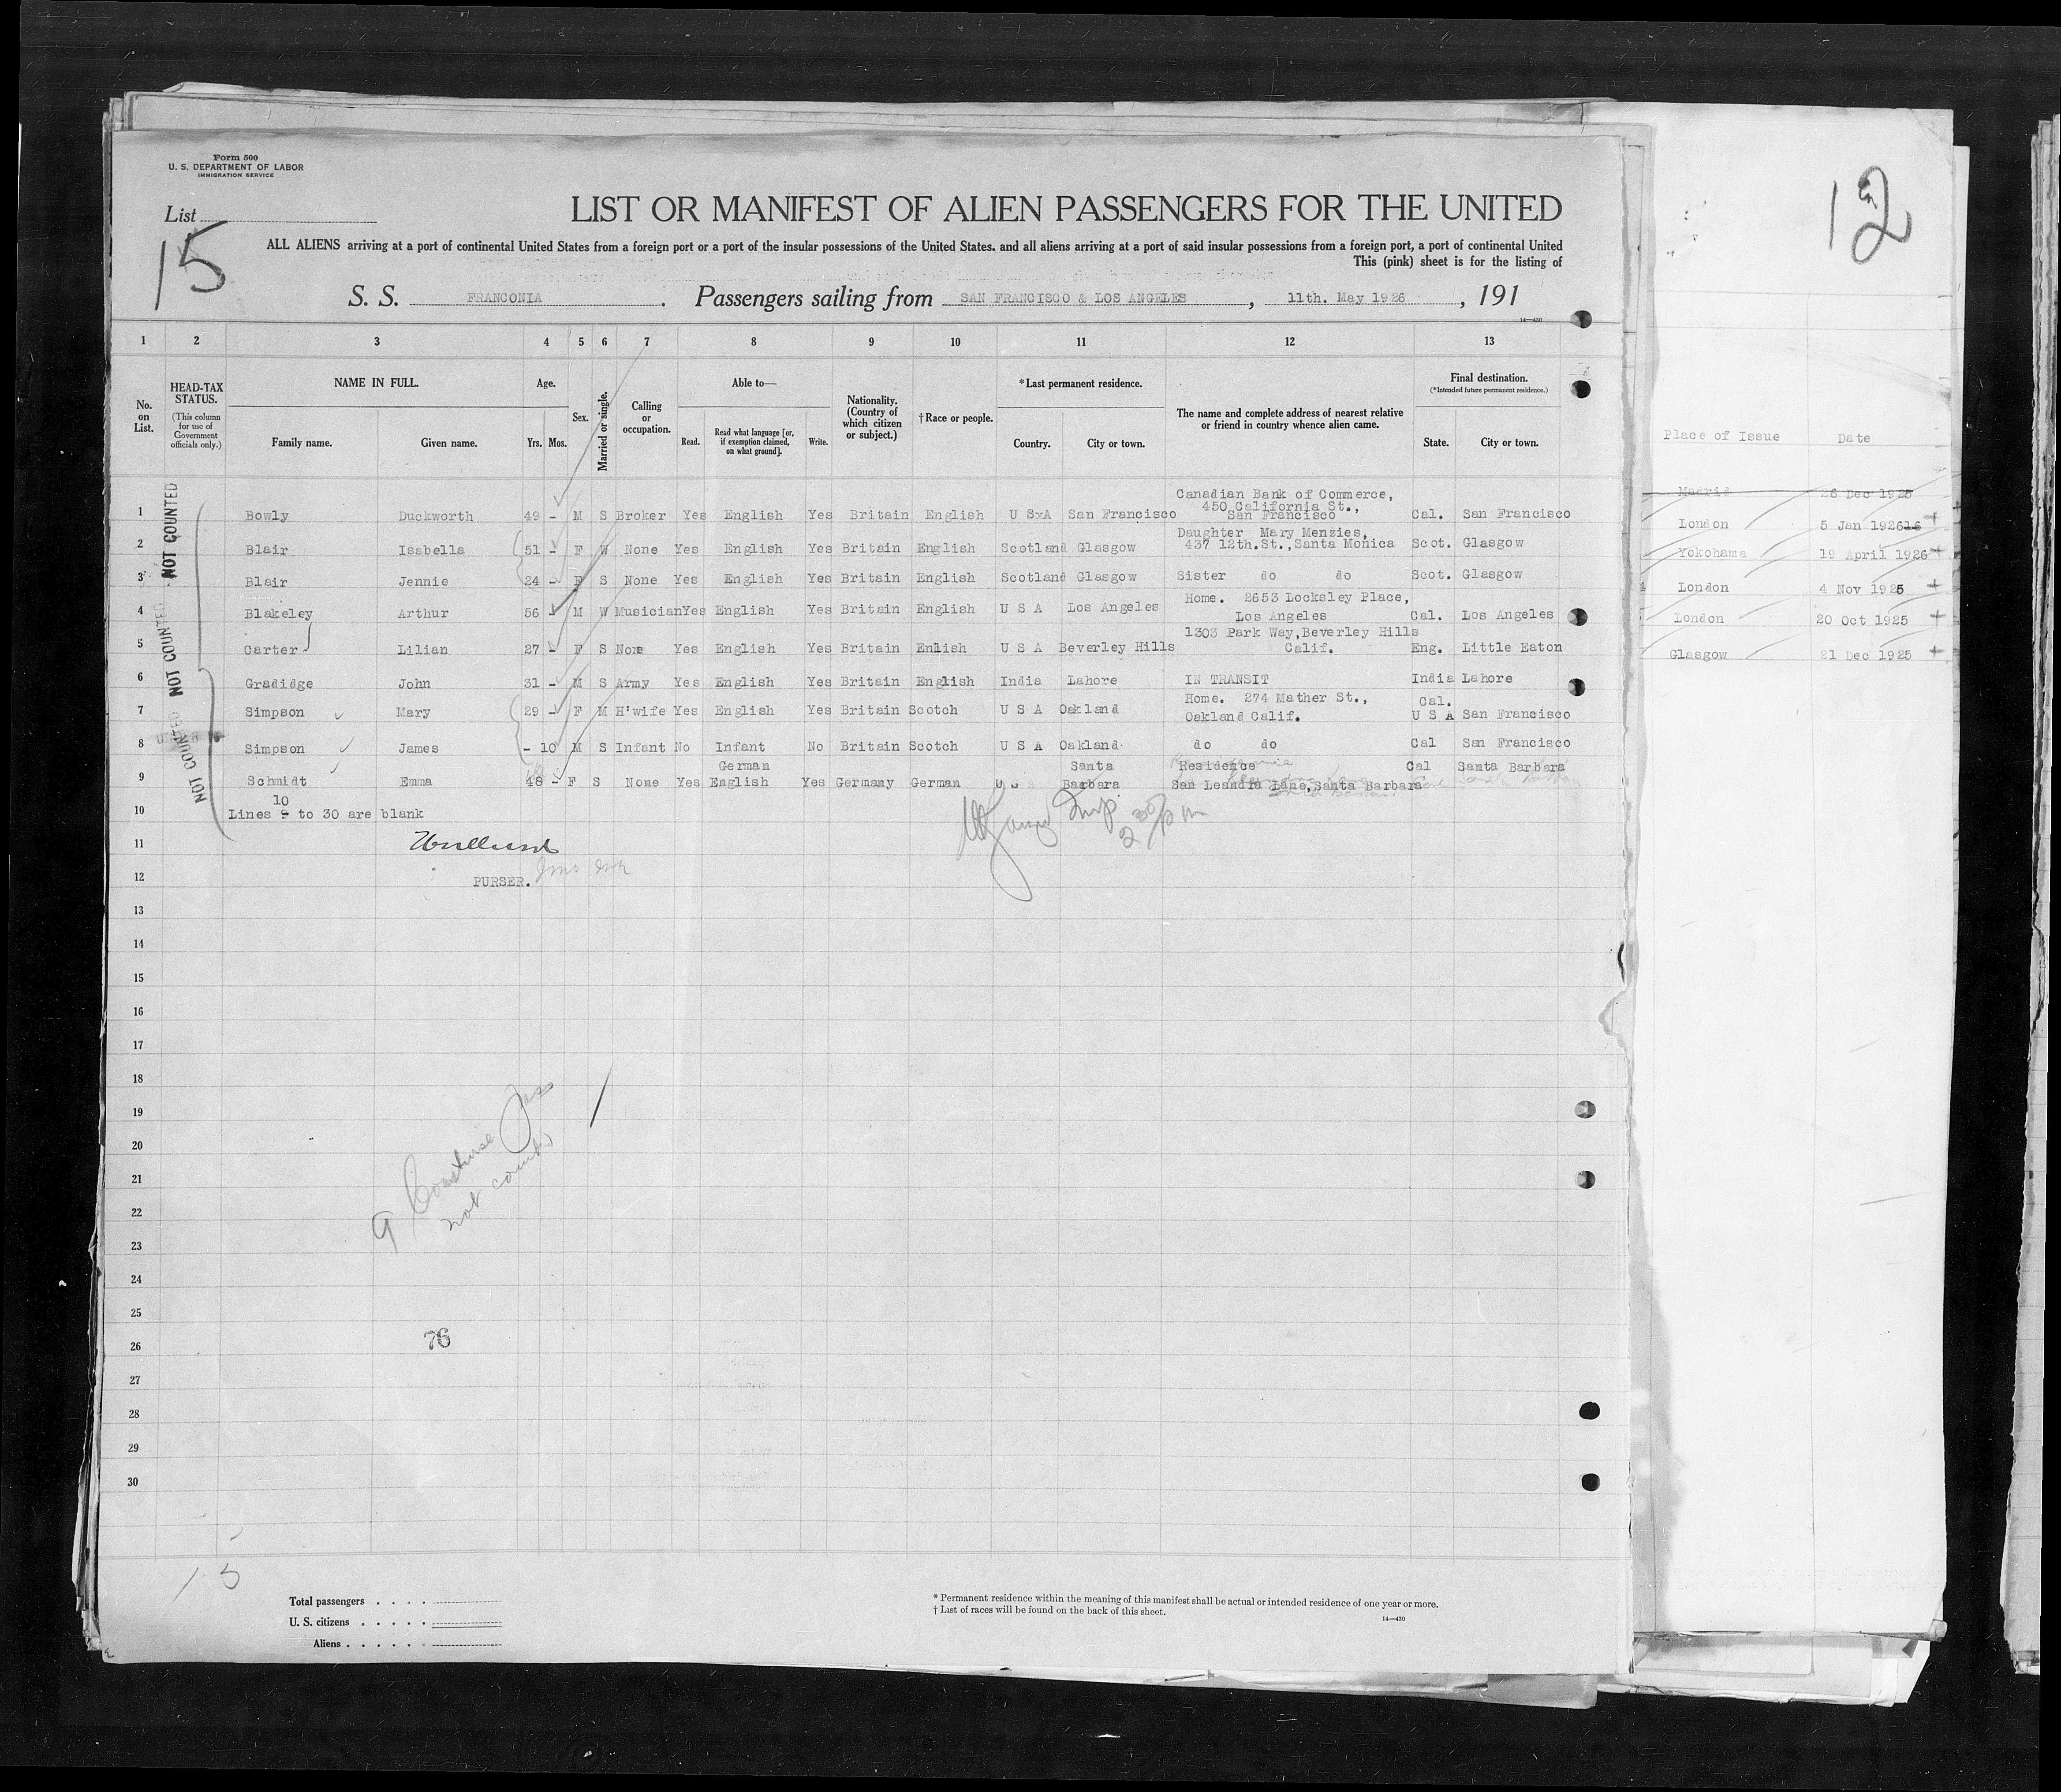 Form 500
U. S. DEPARTMENT OF LABOR
IMMIGRATION SERVICE
List
15
LIST OR MANIFEST OF ALIEN PASSENGERS FOR THE UNITED
ALL ALIENS arriving at a port of continental United States from a foreign port or a port of the insular possessions of the United States, and all aliens arriving at a port of said insular possessions from a foreign port, a port of continental United
This (pink) sheet is for the listing of
S. S. FRANCONIA . Passengers sailing from SAN FRANCISCO & LOS ANGELES , 11th. May 1926 , 191
14—430
1 2 3 4 5 6 7 8 9 10 11 12 13
No. on List.
HEAD-TAX STATUS.
(This column for use of Government officials only.)
NAME IN FULL.
Family name. Given name.
Age.
Yrs. Mos.
Sex.
Married or single.
Calling or occupation.
Able to—
Read. Read what language [or, if exemption claimed, on what ground]. Write.
Nationality. (Country of which citizen or subject.)
† Race or people.
*Last permanent residence.
Country. City or town.
The name and complete address of nearest relative or friend in country whence alien came.
Final destination.
(*Intended future permanent residence.)
State. City or town.
NOT COUNTED
NOT COUNTED
NOT COUNTED
Canadian Bank of Commerce,
450 California St.,
1 Bowly Duckworth 49 - M S Broker Yes English Yes Britain English U S A San Francisco San Francisco Cal. San Francisco
Daughter Mary Menzies,
2 Blair Isabella 51 - F W None Yes English Yes Britain English Scotland Glasgow 437 12th.St.,Santa Monica Scot. Glasgow
3 Blair Jennie 24 - F S None Yes English Yes Britain English Scotland Glasgow Sister do do Scot. Glasgow
Home. 2653 Locksley Place,
4 Blakeley Arthur 56 - M W Musician Yes English Yes Britain English U S A Los Angeles Los Angeles Cal. Los Angeles
1303 Park Way,Beverley Hills
5 Carter Lilian 27 - F S None Yes English Yes Britain Enlish U S A Beverley Hills Calif. Eng. Little Eaton
6 Gradidge John 31 - M S Army Yes English Yes Britain English India Lahore IN TRANSIT India Lahore
Home. 274 Mather St., Cal.
7 Simpson Mary 29 - F M H'wife Yes English Yes Britain Scotch U S A Oakland Oakland Calif. U S A San Francisco
8 Simpson James - 10 M S Infant No Infant No Britain Scotch U S A Oakland do do Cal San Francisco
German Santa Residence Cal Santa Barbara
9 Schmidt Emma 48 - F S None Yes English Yes Germany German U S A Barbara San Leandra Lane,Santa Barbara
10
10 Lines 9 to 30 are blank
2 30/pm
11
12 PURSER.
13
14
15
16
17
18
19
20
21
22
23
24
25
26
27
28
29
30
9 Coastwise
not counted
76
15
Total passengers
U. S. citizens
Aliens
* Permanent residence within the meaning of this manifest shall be actual or intended residence of one year or more.
† List of races will be found on the back of this sheet.
14—430
12
Place of Issue Date
Madrid 26 Dec 1925
London 5 Jan 1926
Yokohama 19 April 1926
London 4 Nov 1925
London 20 Oct 1925
Glasgow 21 Dec 1925